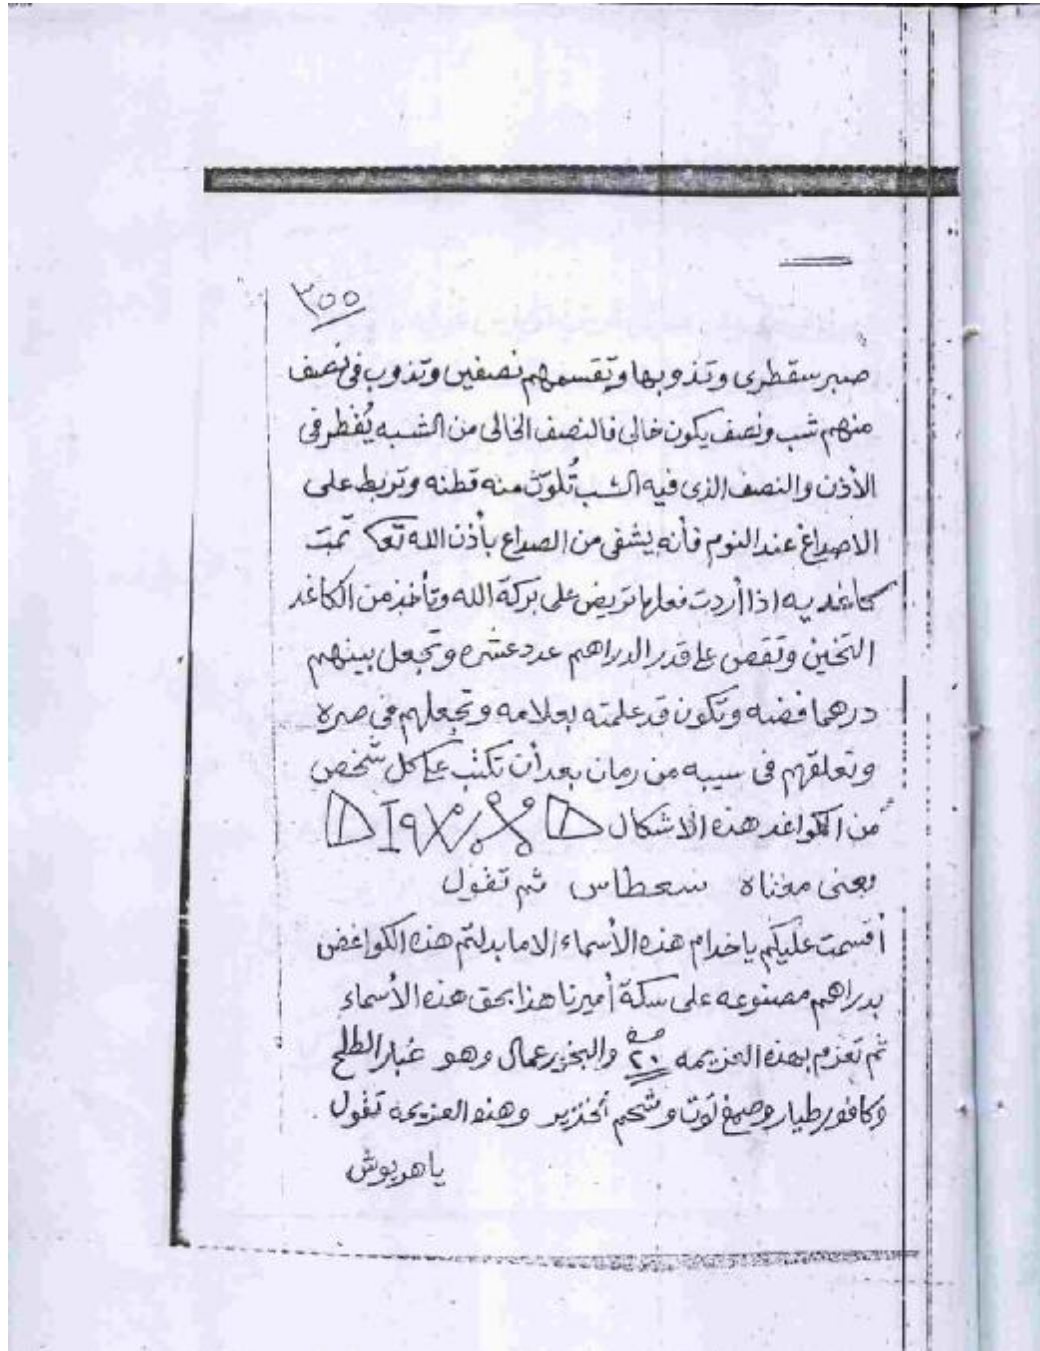 ٣٥٥
صبر سقطرى وتذوبها وتقسمهم نصفين وتذوب فى نصف
منهم شب ونصف يكون خالى فالنصف الخالى من الشبه يُقطر فى
الأذن والنصف الذى فيه الشب تُلوّث منه قطنه وتربط على
الاصداغ عند النوم فأنه يشفى من الصداع بأذن الله تعـ تمت
كاغديه اذا أردت فعلها تريض على بركة الله وتأخذ من الكاغد
التخين وتقص على قدر الدراهم عدد عشره وتجعل بينهم
درهما فضه وتكون قد علمته بعلامه وتجعلهم فى صره
وتعلقهم فى سيبه من رمان بعد أن تكتب على كل شخص
من الكواغد هذه الاشكال
بمعنى معناه سعطاس ثم تقول
أقسمت عليكم ياخدام هذه الأسماء الا مابدلتم هذه الكواغض
بدراهم مصنوعه على سكة أميرنا هذا بحق هذه الأسماء
ثم تعزم بهذه العزيمه ٢٠ مرة والبخور عمال وهو غبار الطلح
وكافور طيار وصمغ توت وشحم خنزير وهذه العزيمه تقول
ياهريوش